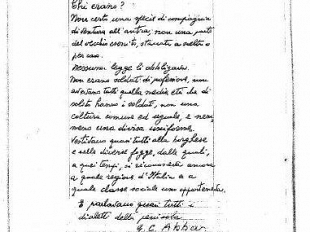 Chi erano?
Non certo una specie di compagnia
di ventura all'antica; non una parte
del vecchio esercito,
per caso.
Nessuna legge li obbligava.
Non erano soldati di professione, non
avevano tutti quella media età che di
solito hanno i soldati, non una
coltura comune ed eguale, e nem
meno una divisa uniforme.
Vestivano quasi tutti alla borghese
e nelle diverse fogge, dalle quali,
a quei tempi, si riconosceva ancora
a quale regione d'Italia e a
quale classe sociale uno appartenesse.
E parlavano quasi tutti i
dialetti della penisola.
G. C. Abba